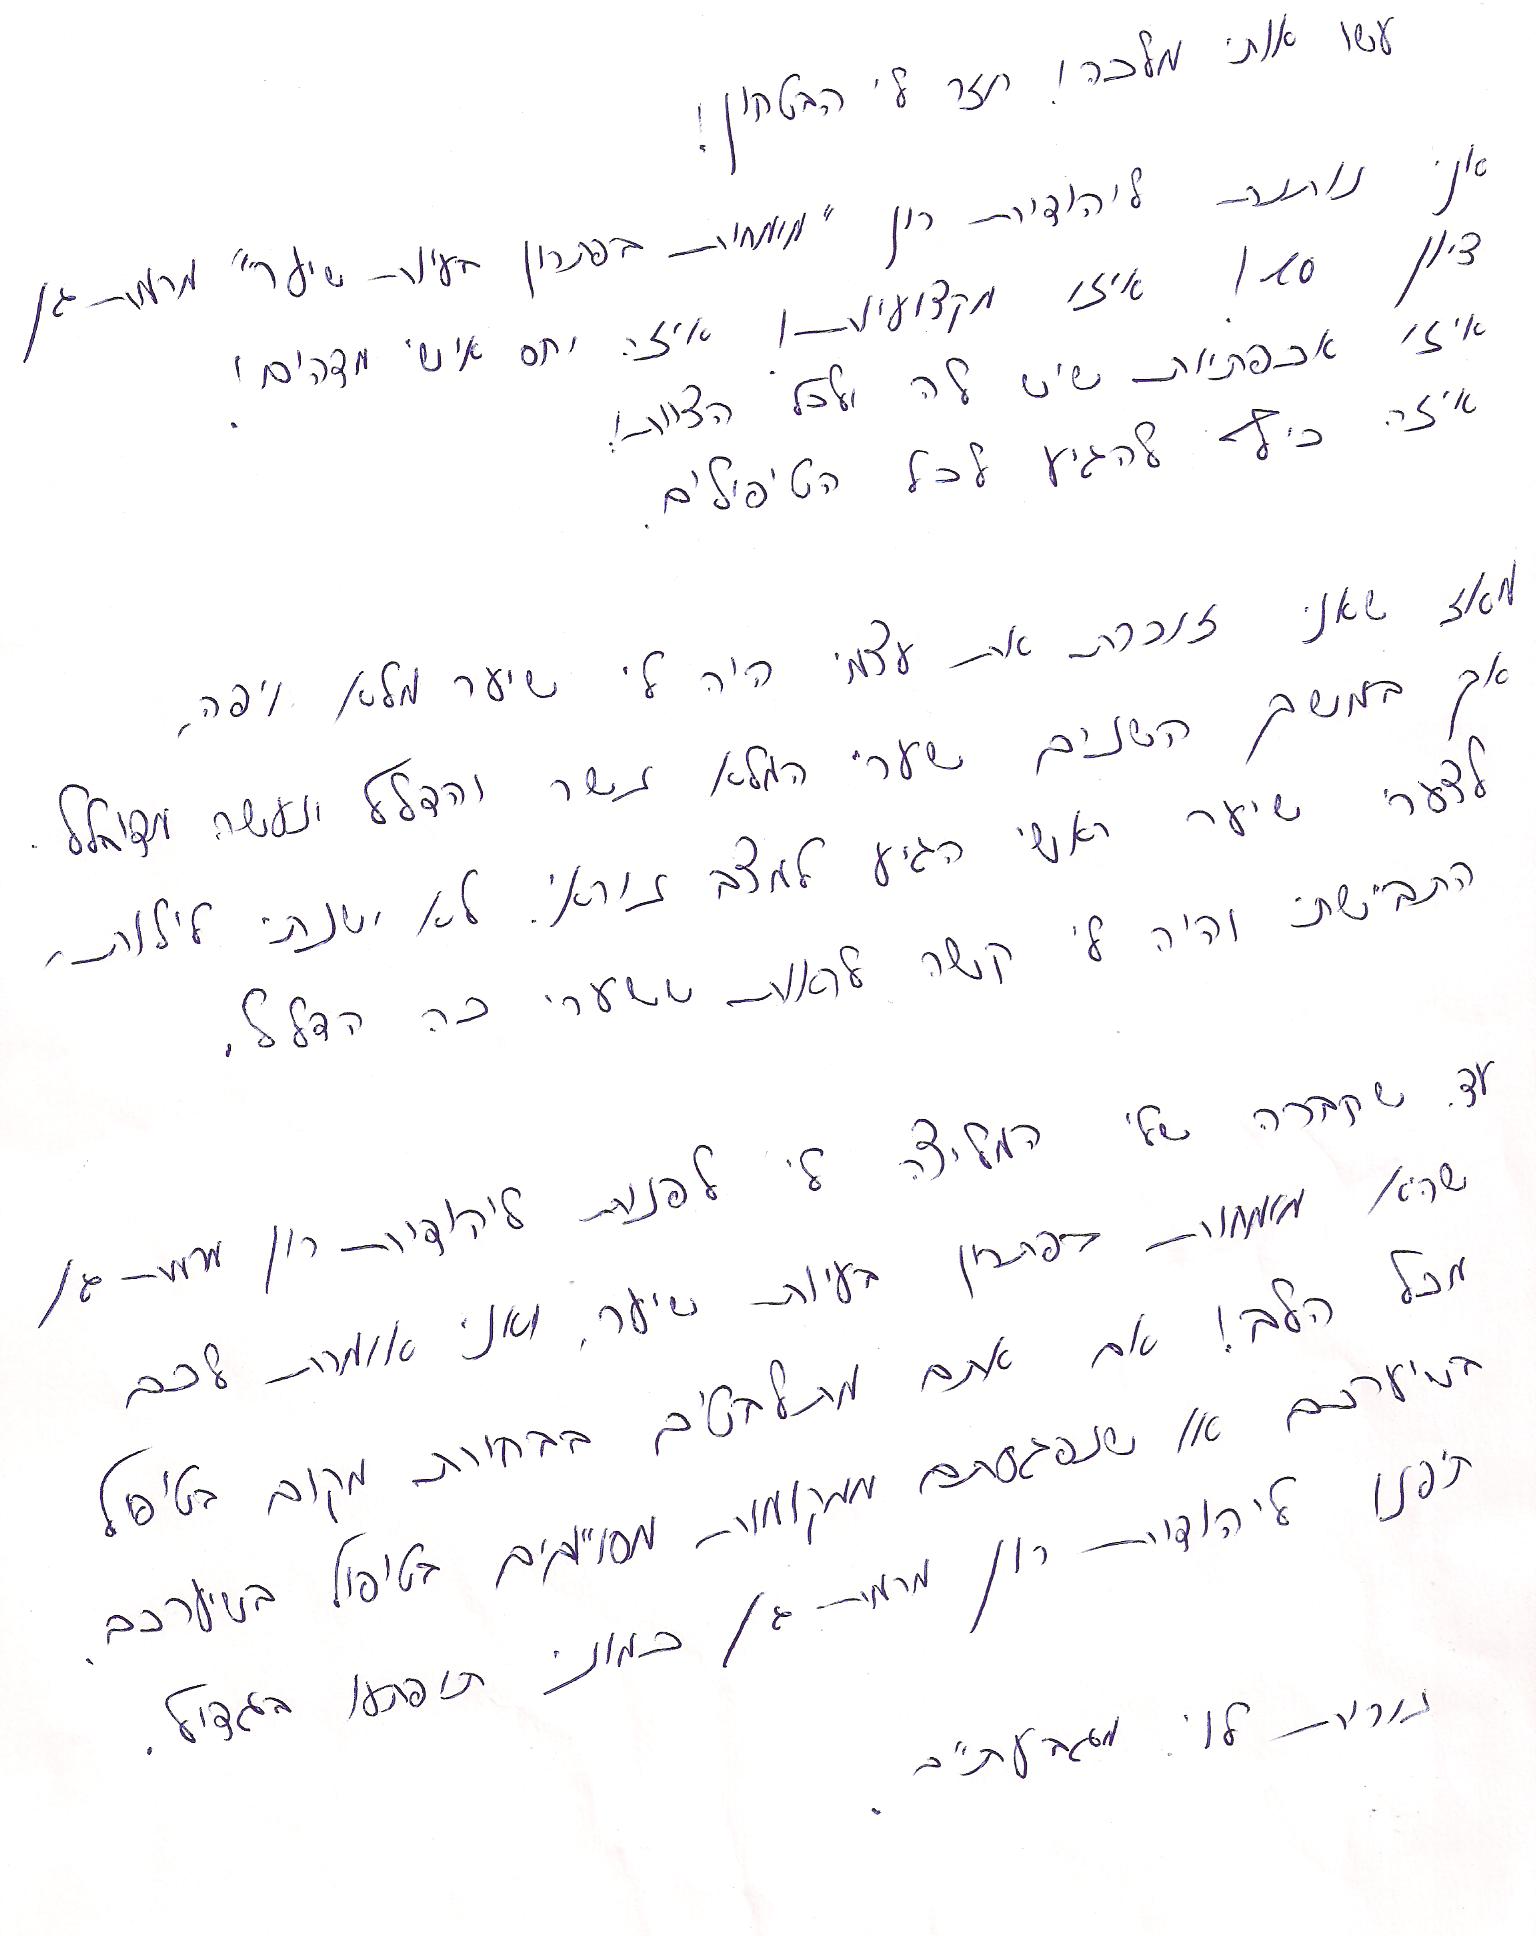 עשו אותי מלכה! חזר לי הבטחון!
אני נותנת ליהודית רון "מומחית בפתרון בעיות שיער" מרמת-גן
ציון 10! איזו מקצועיות! איזה יחס אישי מדהים!
איזו אכפתיות שיש לה ולכל הצוות!
איזה כיף להגיע לכל הטיפולים.
מאז שאני זוכרת את עצמי היה לי שיער מלא ויפה,
אך במשך השנים שערי המלא נשר והדלל ונעשה מדולל.
לצערי שיער ראשי הגיע למצב נוראי. לא ישנתי לילות,
התביישתי והיה לי קשה לראות ששערי כה הדלל.
עד שחברה שלי המליצה לי לפנות ליהודית רון מרמת-גן
שהיא מומחית בפתרון בעיות שיער, ואני אומרת לכם
מכל הלב! אם אתם מתלבטים בבחירת מקום בטיפול
בשיערכם או שנפגעתם ממקומות מסויימים בטיפול בשיערכם.
תיפנו ליהודית רון מרמת-גן כמוני תופתעו בגדול.
נורית לוי מגבעתיים.